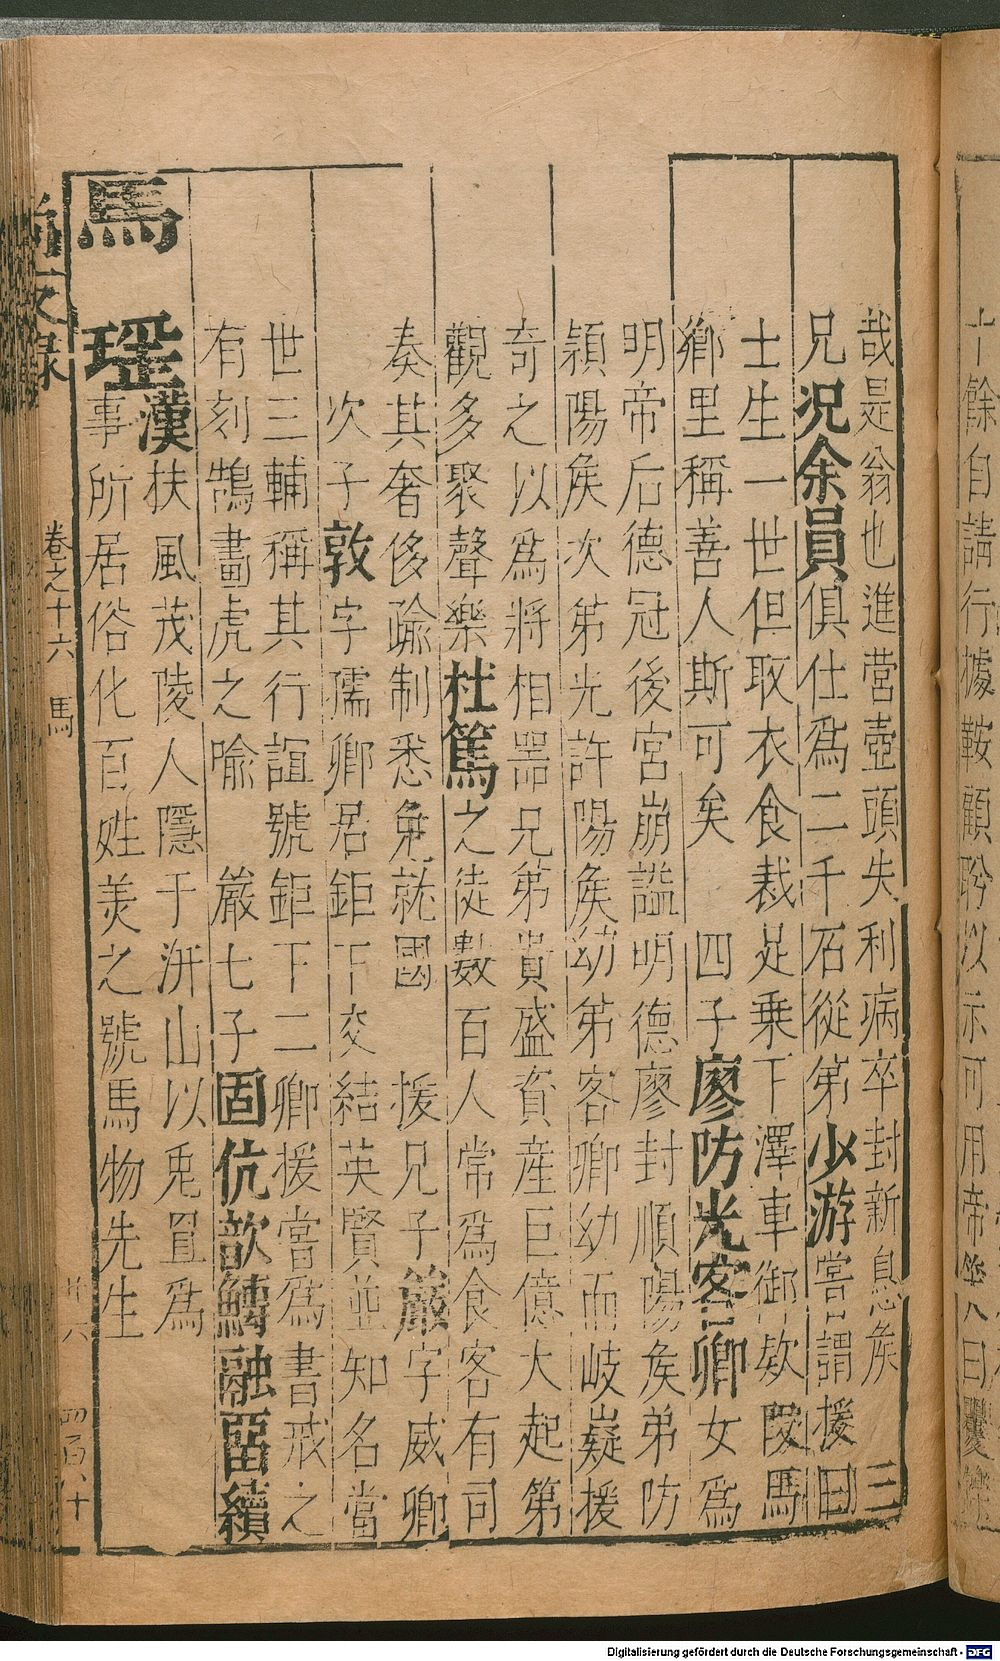 哉是翁也進營壺頭失利病卒封新息矦　三
兄况余員俱仕爲二千石從弟少游嘗謂援曰
士生一世但取衣食裁足乗下澤車御欵段馬
鄉里稱善人斯可矣　四子廖防光客卿女爲
明帝后德冠後宮崩諡明德廖封順陽矦弟防
頴陽矦次第光許陽矦幼弟客卿幼而岐嶷援
奇之以爲將相噐兄弟貴盛資産巨億大起第
觀多聚聲樂杜篤之徒數百人常爲食客有司
奏其奢侈踰制悉免就國　援兄子嚴字威卿
次子敦字孺卿居鉅下交結英賢並知名當
世三輔稱其行誼號鉅下二卿援當爲書戒之
有刻鵠畫虎之喻　嚴七子固伉歆鱄融畱續
馬瑶漢扶風茂陵人隱于汧山以兎罝爲
事所居俗化百姓美之號馬物先生
卷之十六　馬
廿六
十餘自請行據鞍顧盻以示可用帝笑曰矍
Digitalisierung gefördert durch die Deutsche Forschungsgemeinschaft - DFG